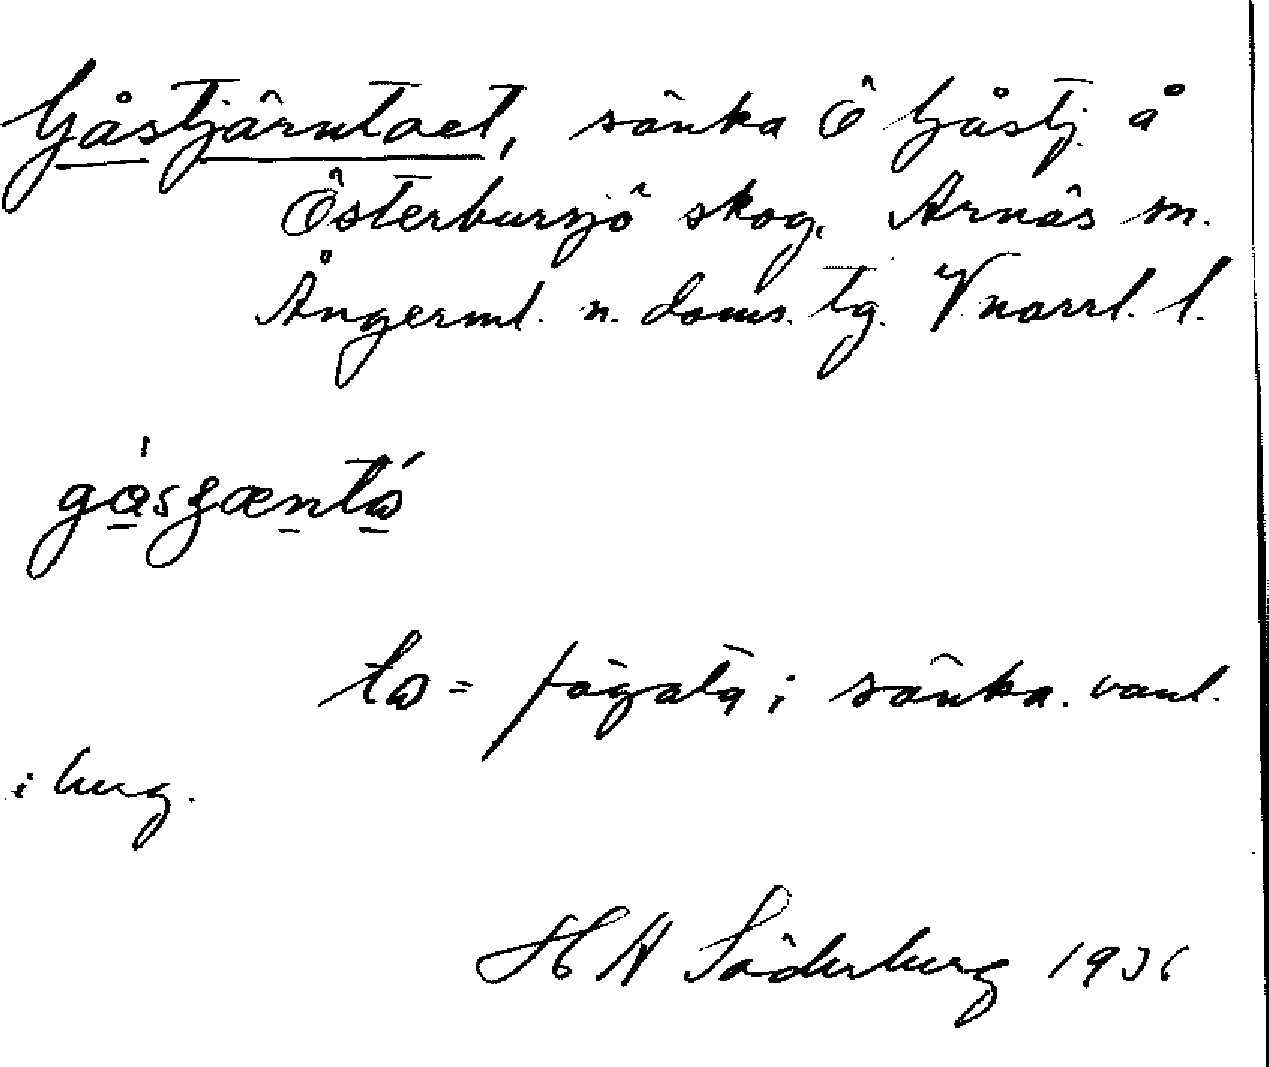 Gåstjärntaet, sänka Ö Gåstj. å
Österbursjö skog, Arnäs sn.
Ångerml. n. doms. tg. V norrl. l.
to = fägata; sänka. vanl.
i berg.
H N Söderberg 1936